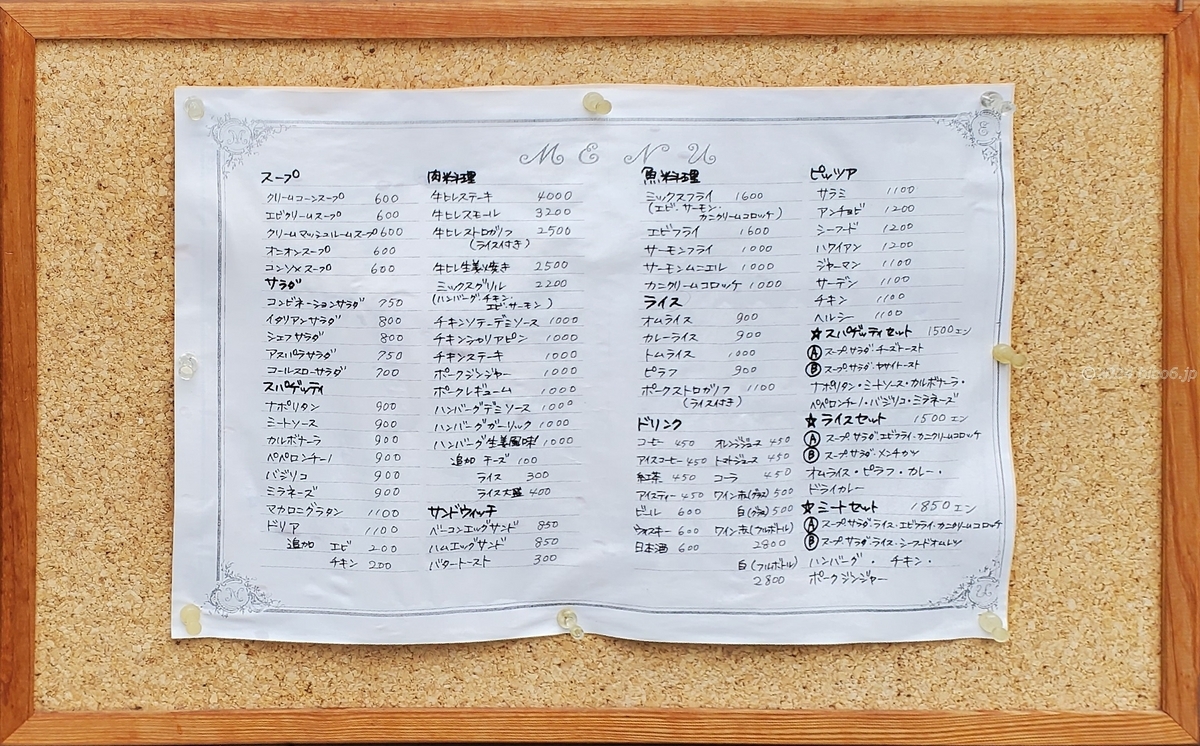 MENU
スープ
クリームコーンスープ 600
エビクリームスープ 600
クリームマッシュルームスープ 600
オニオンスープ 600
コンソメスープ 600
サラダ
コンビネーションサラダ 750
イタリアンサラダ 800
シェフサラダ 800
アスパラサラダ 750
コールスローサラダ 700
スパゲッティ
ナポリタン 900
ミートソース 900
カルボナーラ 900
ペペロンチーノ 900
バジリコ 900
ミラネーズ 900
マカロニグラタン 1100
ドリア 1100
追加 エビ 200
チキン 200
肉料理
牛ヒレステーキ 4000
牛ヒレスモール 3200
牛ヒレストロガノフ 2500
(ライス付き)
牛ヒレ生姜焼き 2500
ミックスグリル 2200
(ハンバーグ・チキン・
エビ・サーモン)
チキンソテーデミソース 1000
チキンシャリアピン 1000
チキンステーキ 1000
ポークジンジャー 1000
ポークレギューム 1000
ハンバーグデミソース 1000
ハンバーグガーリック 1000
ハンバーグ生姜風味 1000
追加 チーズ 100
ライス 300
ライス大盛 400
サンドウィッチ
ベーコンエッグサンド 850
ハムエッグサンド 850
バタートースト 300
魚料理
ミックスフライ 1600
(エビ・サーモン・
カニクリームコロッケ)
エビフライ 1600
サーモンフライ 1000
サーモンムニエル 1000
カニクリームコロッケ 1000
ライス
オムライス 900
カレーライス 900
トムライス 1000
ピラフ 900
ポークストロガノフ 1100
(ライス付き)
ドリンク
コーヒー 450 オレンジジュース 450
アイスコーヒー 450 トマトジュース 450
紅茶 450 コーラ 450
アイスティー 450 ワイン赤(グラス) 500
ビール 600 白(グラス) 500
ウィスキー 600 ワイン赤(フルボトル)
日本酒 600 2800
白(フルボトル)
2800
ピッツア
サラミ 1100
アンチョビ 1200
シーフード 1200
ハワイアン 1200
ジャーマン 1100
サーデン 1100
チキン 1100
ヘルシー 1100
☆スパゲッティセット 1500エン
Ⓐ スープ・サラダ・チーズトースト
Ⓑ スープ・サラダ・ヤサイトースト
ナポリタン・ミートソース・カルボナーラ・
ペペロンチーノ・バジリコ・ミラネーズ
☆ライスセット 1500エン
Ⓐ スープ・サラダ・エビフライ・カニクリームコロッケ
Ⓑ スープ・サラダ・メンチカツ
オムライス・ピラフ・カレー・
ドライカレー
☆ミートセット 1850エン
Ⓐ スープ・サラダ・ライス・エビフライ・カニクリームコロッケ
Ⓑ スープ・サラダ・ライス・シーフードオムレツ
ハンバーグ・チキン・
ポークジンジャー